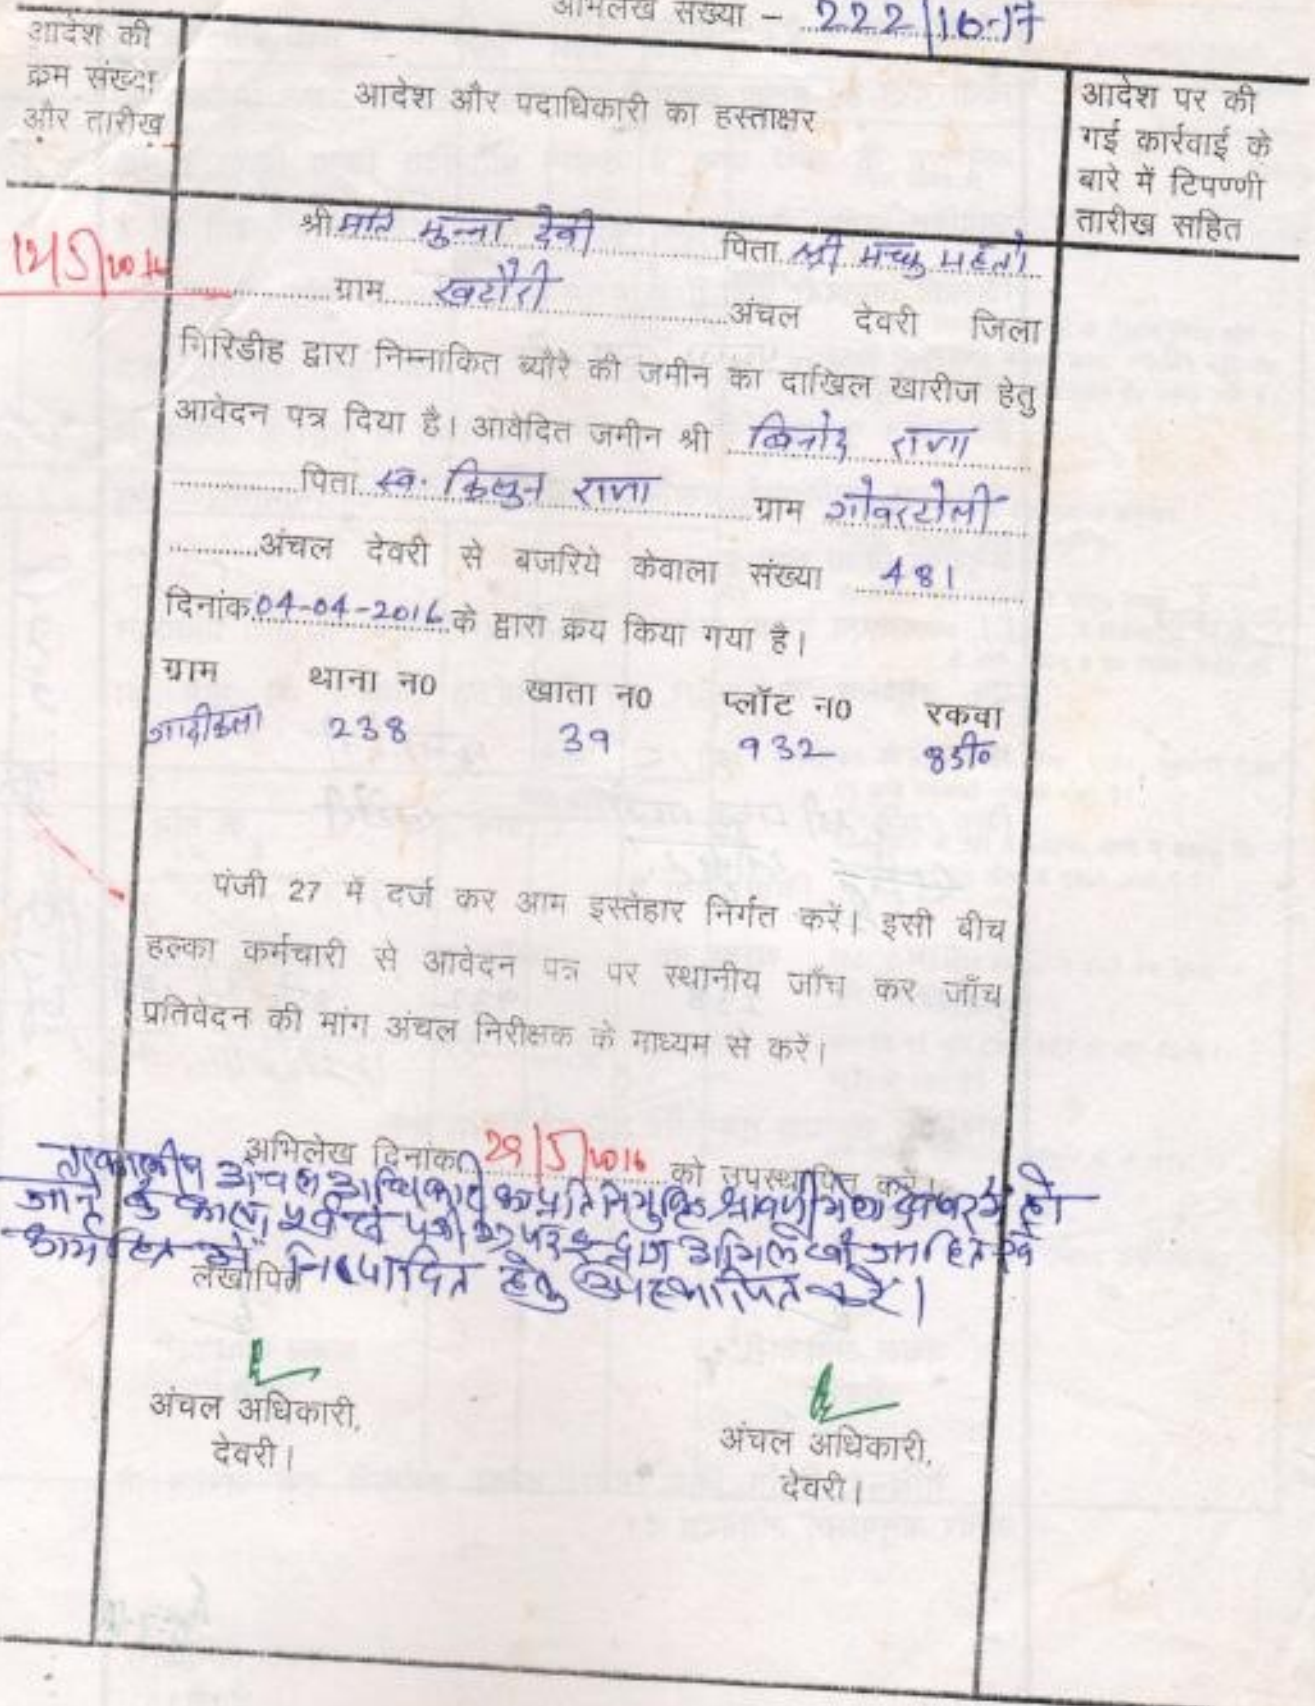 अभिलेख संख्या – 222/16-17
आदेश की
क्रम संख्या
और तारीख
आदेश और पदाधिकारी का हस्ताक्षर
आदेश पर की
गई कार्रवाई के
बारे में टिपण्णी
तारीख सहित
12/5/2016
श्रीमति मुन्ना देवी पिता श्री मच्कु महतो
ग्राम खटौरी अंचल देवरी जिला
गिरिडीह द्वारा निम्नाकित ब्यौरे की जमीन का दाखिल खारीज हेतु
आवेदन पत्र दिया है। आवेदित जमीन श्री बिनोद राणा
पिता स्व. किशुन राणा ग्राम गोबरटोली
अंचल देवरी से बजरिये केवाला संख्या 481
दिनांक 04-04-2016 के द्वारा क्रय किया गया है।
ग्राम थाना न0 खाता न0 प्लॉट न0 रकवा
गादीकला 238 39 932 8डी0
पंजी 27 में दर्ज कर आम इस्तेहार निर्गत करें। इसी बीच
हल्का कर्मचारी से आवेदन पत्र पर स्थानीय जाँच कर जाँच
प्रतिवेदन की मांग अंचल निरीक्षक के माध्यम से करें।
अभिलेख दिनांक 28/5/2016 को उपस्थापित करें।
तत्कालीन अंचल अधिकारी का प्रतिनियुक्ति श्रावणी मेला देवघर में हो
जाने के कारण पूर्व में पंजी 27 पर अभिलेखों
निष्पादित हेतु उपस्थापित करें।
लेखापित
अंचल अधिकारी,
देवरी।
अंचल अधिकारी,
देवरी।